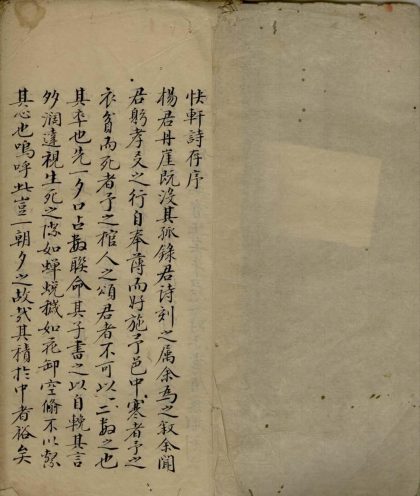 快軒詩存序
楊君丹崖既沒其孤錄君詩刻之属余為之叙余聞
君躬孝友之行自奉薄而好施予邑中寒者予之
衣貧而死者予之棺人之頌君者不可以一二數之也
其卒也先一夕口占數聯命其子書之以自輓其言
多濶達視生死之際如蟬蛻穢如花卸空脩不以絮
其心也嗚呼此豈一朝夕之故哉其積於中者裕矣